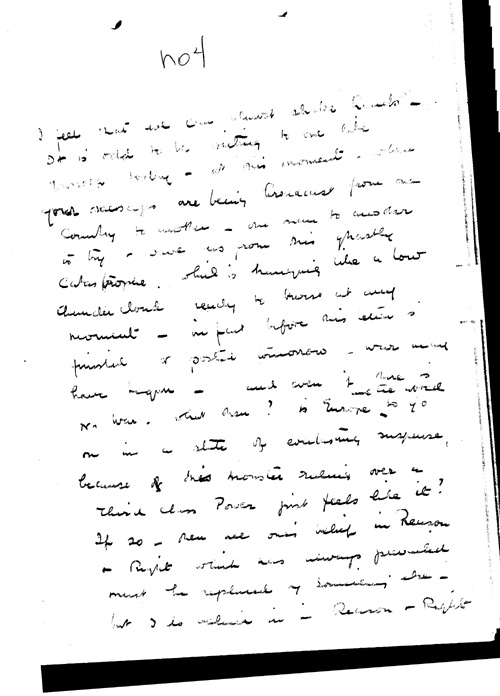 no 4
I feel that we can almost shake hands -
It is odd to be writing to one like
yourself today - at this moment - when
your messages are being broadcast from one
Country to another - one man to another
to try - save us from this ghastly
Catastrophe. which is hanging like a low
thunder cloud ready to burst at any
moment - in fact before this letter is
finished or posted tomorrow - war may
have begun - and even if there is
no war. what then? is Europe and the world to go
on in a state of everlasting suspense,
because of this monster ruling over a
third class Power just feels like it?
If so - then all one's belief in Reason
+ Right which has always prevailed
must be replaced by something else -
but I do believe in - Reason + Right